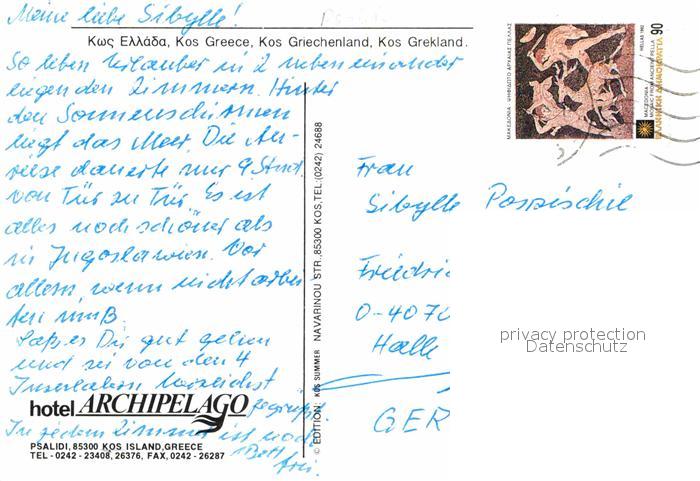 Meine liebe Sibylle!
Κως Ελλάδα, Kos Greece, Kos Griechenland, Kos Grekland.
So leben Urlauber in 2 nebeneinander
liegenden Zimmern. Hinter
den Sonnenschirmen
liegt das Meer. Die An-
reise dauerte nur 9 Stund.
von Tür zu Tür. Es ist
alles noch schöner als
in Jugoslawien. Vor
allem, wenn nicht arbei
ten muß.
Laß es Dir gut gehen
und sei von den 4
herzlichst
gegrüßt.
In jedem Zimmer ist noch
1 Bett
frei.
hotel ARCHIPELAGO
PSALIDI, 85300 KOS ISLAND, GREECE
TEL - 0242 - 23408, 26376, FAX, 0242 - 26287
© EDITION: KOS SUMMER NAVARINOU STR., 85300 KOS, TEL: (0242) 24688
ΜΑΚΕΔΟΝΙΑ - ΨΗΦΙΔΩΤΟ ΑΡΧΑΙΑΣ ΠΕΛΛΑΣ
MACEDONIA - MOSAIC FROM ANCIENT PELLA
HELLAS 1992
ΕΛΛΗΝΙΚΗ ΔΗΜΟΚΡΑΤΙΑ
90
Frau
Sibylle Pospischil
Friedri
O-4070
Halle
GER
privacy protection
Datenschutz